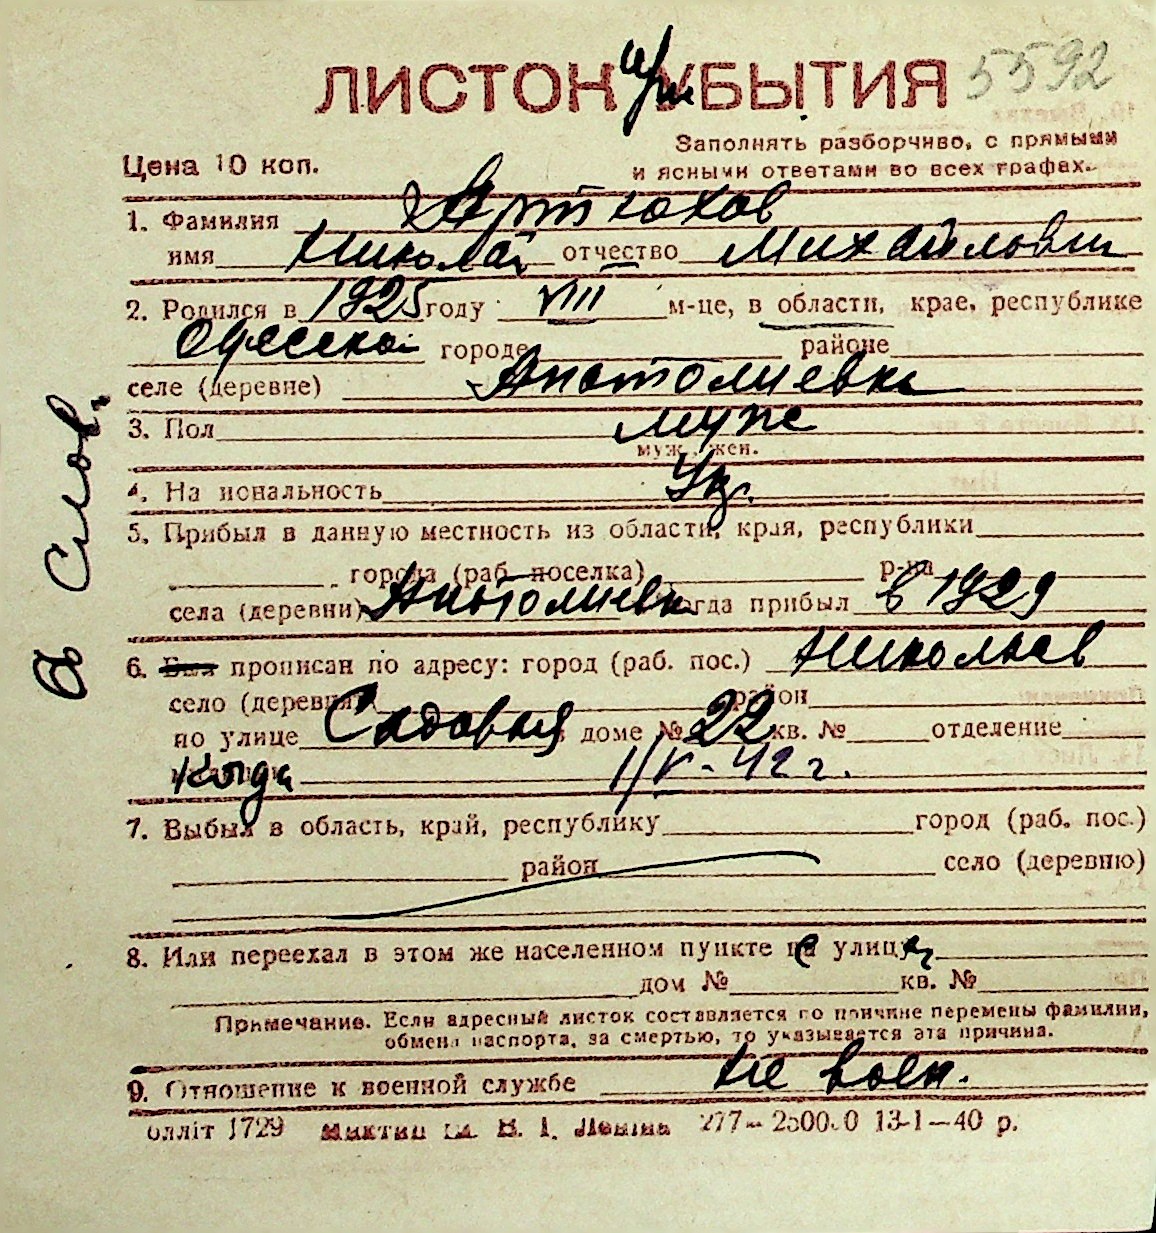 ЛИСТОК УБЫТИЯ 5592
Заполнять разборчиво, с прямыми
Цена 10 коп. и ясными ответами во всех графах.
1. Фамилия Артюхов
имя Николай отчество Михайлович
2. Родился в 1925 году VIII м-це, в области, крае, республике
Одесская городе районе
селе (деревне) Анатолиевка
3. Пол муж
муж., жен.
4. Национальность Ук.
5. Прибыл в данную местность из области, края, республики
города (раб. поселка) р-на
села (деревни) Анатолиевк когда прибыл в 1929
6. Был прописан по адресу: город (раб. пос.) Николаев
село (деревня) район
по улице Садовая доме № 22 кв. № отделение
Когда 1/V-42 г.
7. Выбыл в область, край, республику город (раб. пос.)
район село (деревню)
8. Или переехал в этом же населенном пункте на улицу
дом № кв. №
Примечание. Если адресный листок составляется по причине перемены фамилии,
обмена паспорта, за смертью, то указывается эта причина.
9. Отношение к военной службе не воен.
олліт 1729 В. І. Леніна 277— 13-1—40 р.